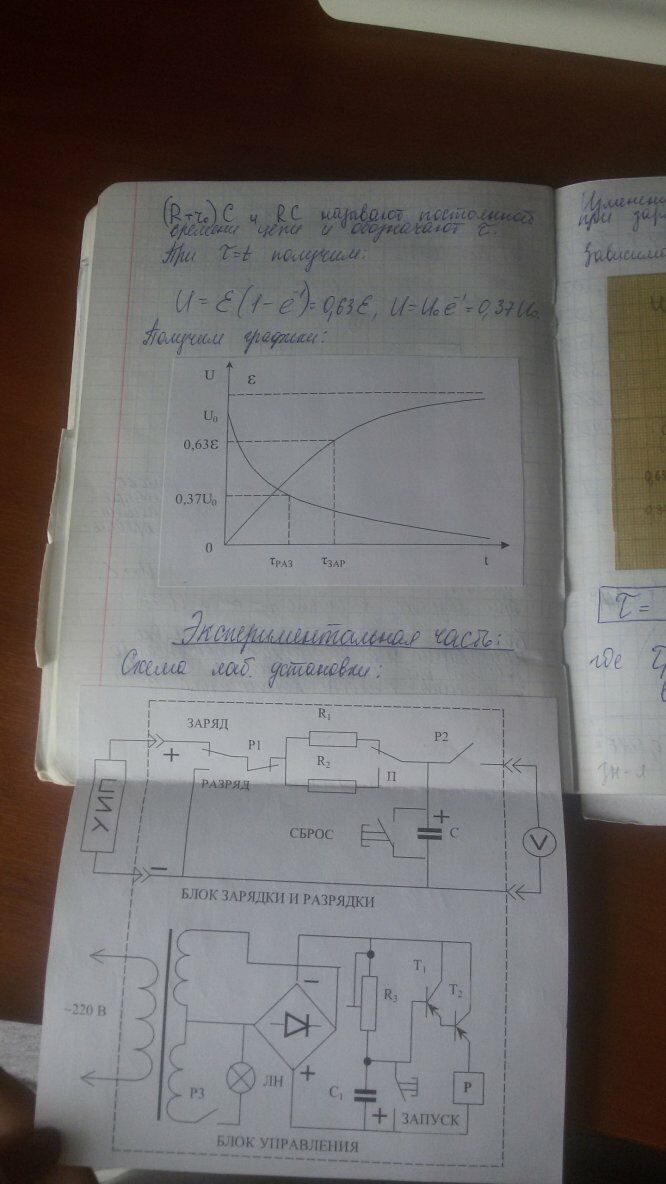 (R+r₀)C и RC называют постоянной
времени цепи и обозначают τ.
При τ=t получим:
U = ε(1 − e⁻¹) = 0,63ε, U = U₀e⁻¹ = 0,37U₀.
Получим графики:
U
ε
U₀
0,63ε
0,37U₀
0
τРАЗ
τЗАР
t
Экспериментальная часть:
Схема лаб. установки:
ЗАРЯД
R₁
P1
P2
R₂
П
РАЗРЯД
+
ИПУ
СБРОС
+
C
V
−
БЛОК ЗАРЯДКИ И РАЗРЯДКИ
~220 В
−
R₃
T₁
T₂
P3
ЛН
+
C₁
+
ЗАПУСК
P
БЛОК УПРАВЛЕНИЯ
при
τ =
где